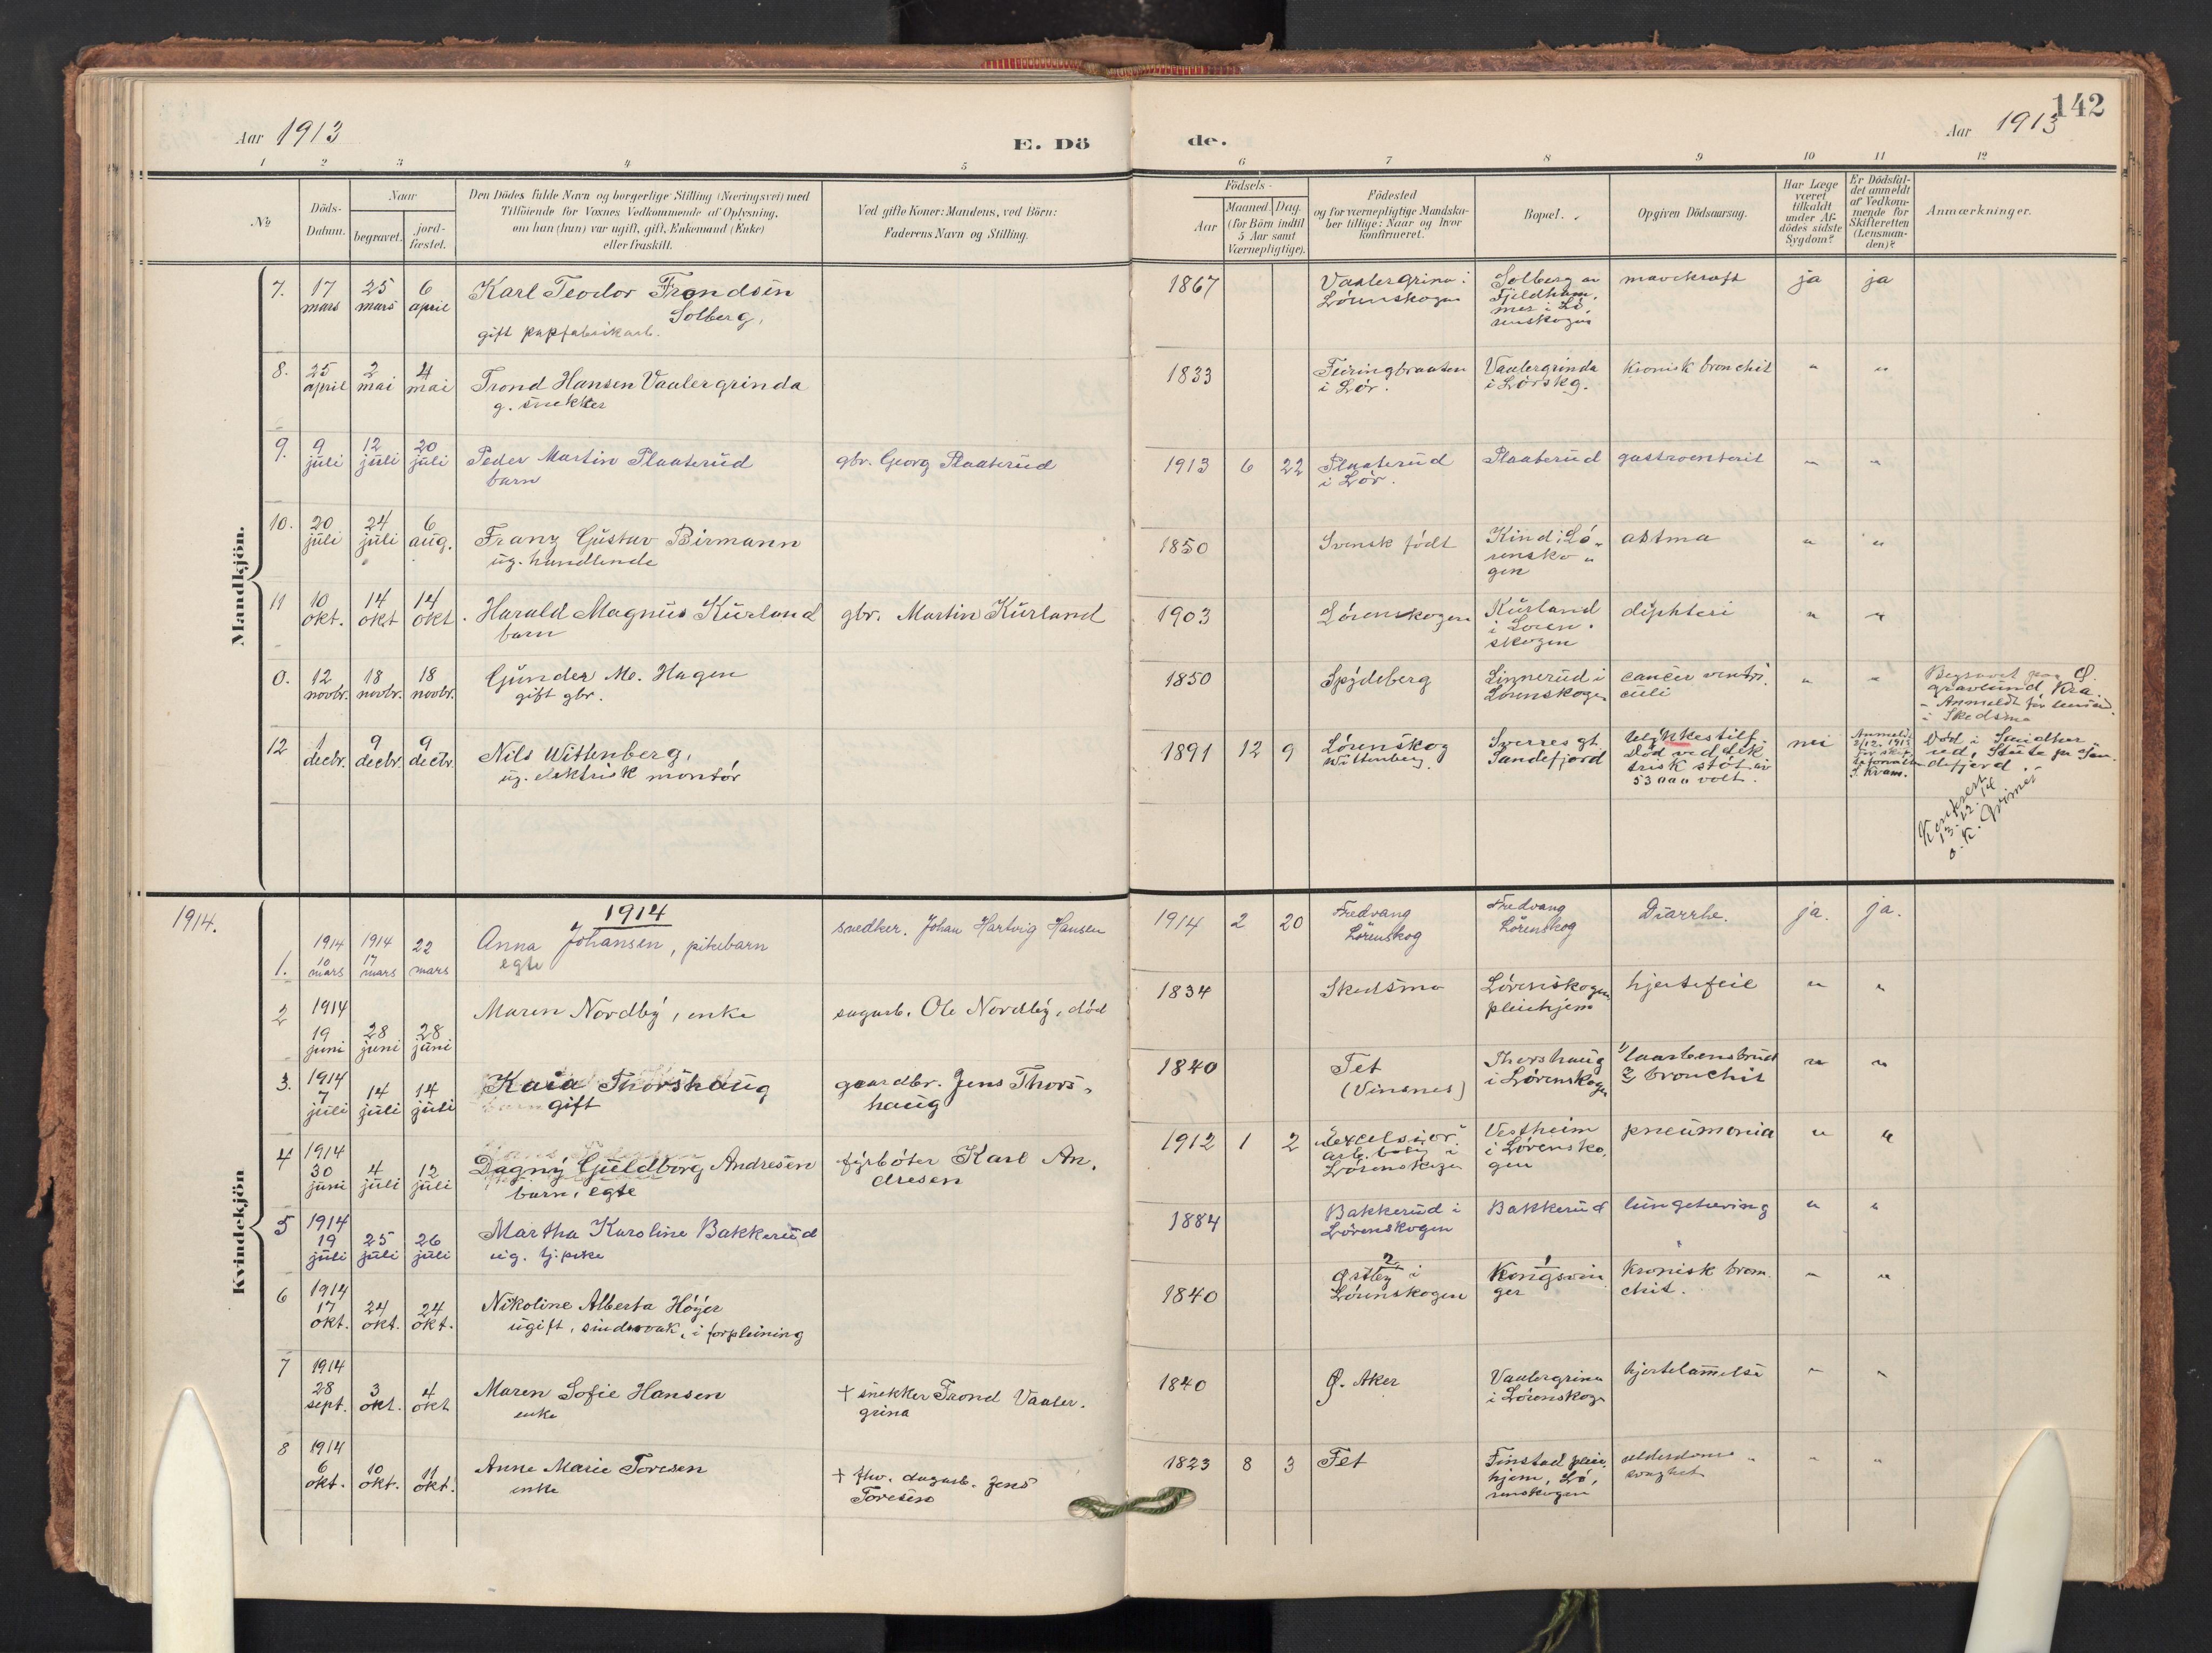 142
Aar 1913
E. Dö
de.
Aar 1913
1 2 3 4 5 6 7 8 9 10 11 12
No
Döds-
Datum.
Naar
begravet.
jord-
fæstet.
Den Dödes fulde Navn og borgerlige Stilling (Næringsvei) med
Tilföiende for Voxnes Vedkommende af Oplysning,
om han (hun) var ugift, gift, Enkemand (Enke)
eller fraskilt.
Ved gifte Koner: Mandens, ved Börn:
Faderens Navn og Stilling.
Födsels-
Aar
Maaned. Dag.
(for Börn indtil
5 Aar samt
Værnepligtige).
Födested
og for værnepligtige Mandska-
ber tillige: Naar og hvor
konfirmeret.
Bopæl.
Opgiven Dödsaarsag.
Har Læge
været
tilkaldt
under Af-
dödes sidste
Sygdom?
Er Dödsfal-
det anmeldt
af Vedkom-
mende for
Skifteretten
(Lensman-
den)?
Anmærkninger.
Mandkjön.
7. 17 mars 25 mars 6 april
Karl Teodor Frandsen
Solberg,
gift papfabrikarb.
1867
Vaalergrina i
Lörenskogen
Solberg av
Fjeldham,
mer i Lö,
renskogen
mavekraft
ja ja
8. 25 april 2 mai 4 mai
Trond Hansen Vaalergrinda
g. snekker
1833
Feiringbraaten
i Lör.
Vaalergrinda
i Lörskg.
Kronisk bronchit
" "
9. 9 juli 12 juli 20 juli
Peder Martin Plaaterud
barn
gbr. Georg Plaaterud
1913 6 22
Plaaterud
i Lör.
Plaaterud
gastroenterit
" "
10. 20 juli 24 juli 6 aug.
Franz Gustav Birmann
ug. handlende
1850
Svensk födt
Kind i Lö-
rensko-
gen
astma
" "
11 10 okt. 14 okt 14 okt.
Harald Magnus Kurland
barn
gbr. Martin Kurland
1903
Lörenskogen
Kurland
i Lören.
skogen
diphteri
" "
0. 12 novbr. 18 novbr. 18 novbr.
Gunder M. Hagen
gift gbr.
1850
Spydeberg
Linnerud i
Lörenskogen
cancer ventri.
culi
" "
Begravet paa Ø.
gravlund, Kra.
- Anmeldt for lensmd.
i Skedsmo
12 1 decbr. 9 decbr. 9 decbr.
Nils Wittenberg,
ug. elektrisk montör
1891 12 9
Lörenskog
Wittenberg.
Sverres gt.
Sandefjord
Ulykkestilf.
Död ved elek-
trisk stöt av
53000 volt.
nei
Anmeldt
2/12 1913
for skif-
teforvalter
S. Kvam.
Död i
pr San-
defjord.
O. K. Grimet
Kvindekjön
1914.
1914
1. 1914 10 mars 1914 17 mars 22 mars
Anna Johansen, pikebarn
egte
snedker. Johan Hartvig Hansen
1914 2 20
Fredvang
Lörenskog
Fredvang
Lörenskog
Diarrhe.
ja. ja.
2 1914 19 juni 28 juni 28 juni
Maren Nordby, enke
sagarb. Ole Nordby, död
1834
Skedsmo
Lörenskogens
pleiehjem
hjertefeil
" "
3. 1914 7 juli 14 juli 14 juli
Kaia Thorshaug
gift
gaardbr. Jens Thors-
haug
1840
Fet
(Vinsnes)
Thorshaug
i Lörenskogen
1) laarbensbrud
2) bronchit
" "
4 1914 30 juni 4 juli 12 juli
Dagny Guldborg Andresen
barn, egte
fyrböter Karl An,
dresen
1912 1 2
"Excelsior"
arb. bolig i
Lörenskogen
Vestheim
i Lörensko,
gen
pneumonia
" "
5 1914 19 juli 25 juli 26 juli
Martha Karoline Bakkerud
ug. tj.pike
1884
Bakkerud i
Lörenskogen
Bakkerud
lungetæring
" "
6 1914 17 okt. 24 okt. 24 okt.
Nikoline Alberta Höyer
ugift, sindssvak, i forpleining
1840
2
Østby i
Lörenskogen
1
Kongsvin
ger
Kronisk bron.
chit.
" "
7 1914 28 sept. 3 okt. 4 okt
Maren Sofie Hansen
enke
+ snekker Trond Vaaler.
grina
1840
Ø. Aker
Vaalergrina
i Lörenskogn
hjertelammelse
" "
8 1914 6 okt. 10 okt. 11 okt.
Anne Marie Toresen
enke
+ fhv. dagarb. Jens
Toresen
1823 8 3
Fet
Finstad pleie,
hjem, Lö,
renskogen
alderdoms
svaghet
" "